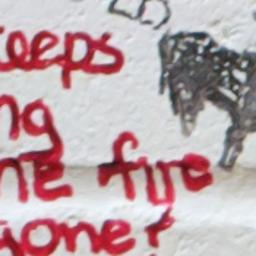 eeps
ng
ne fire
gone?